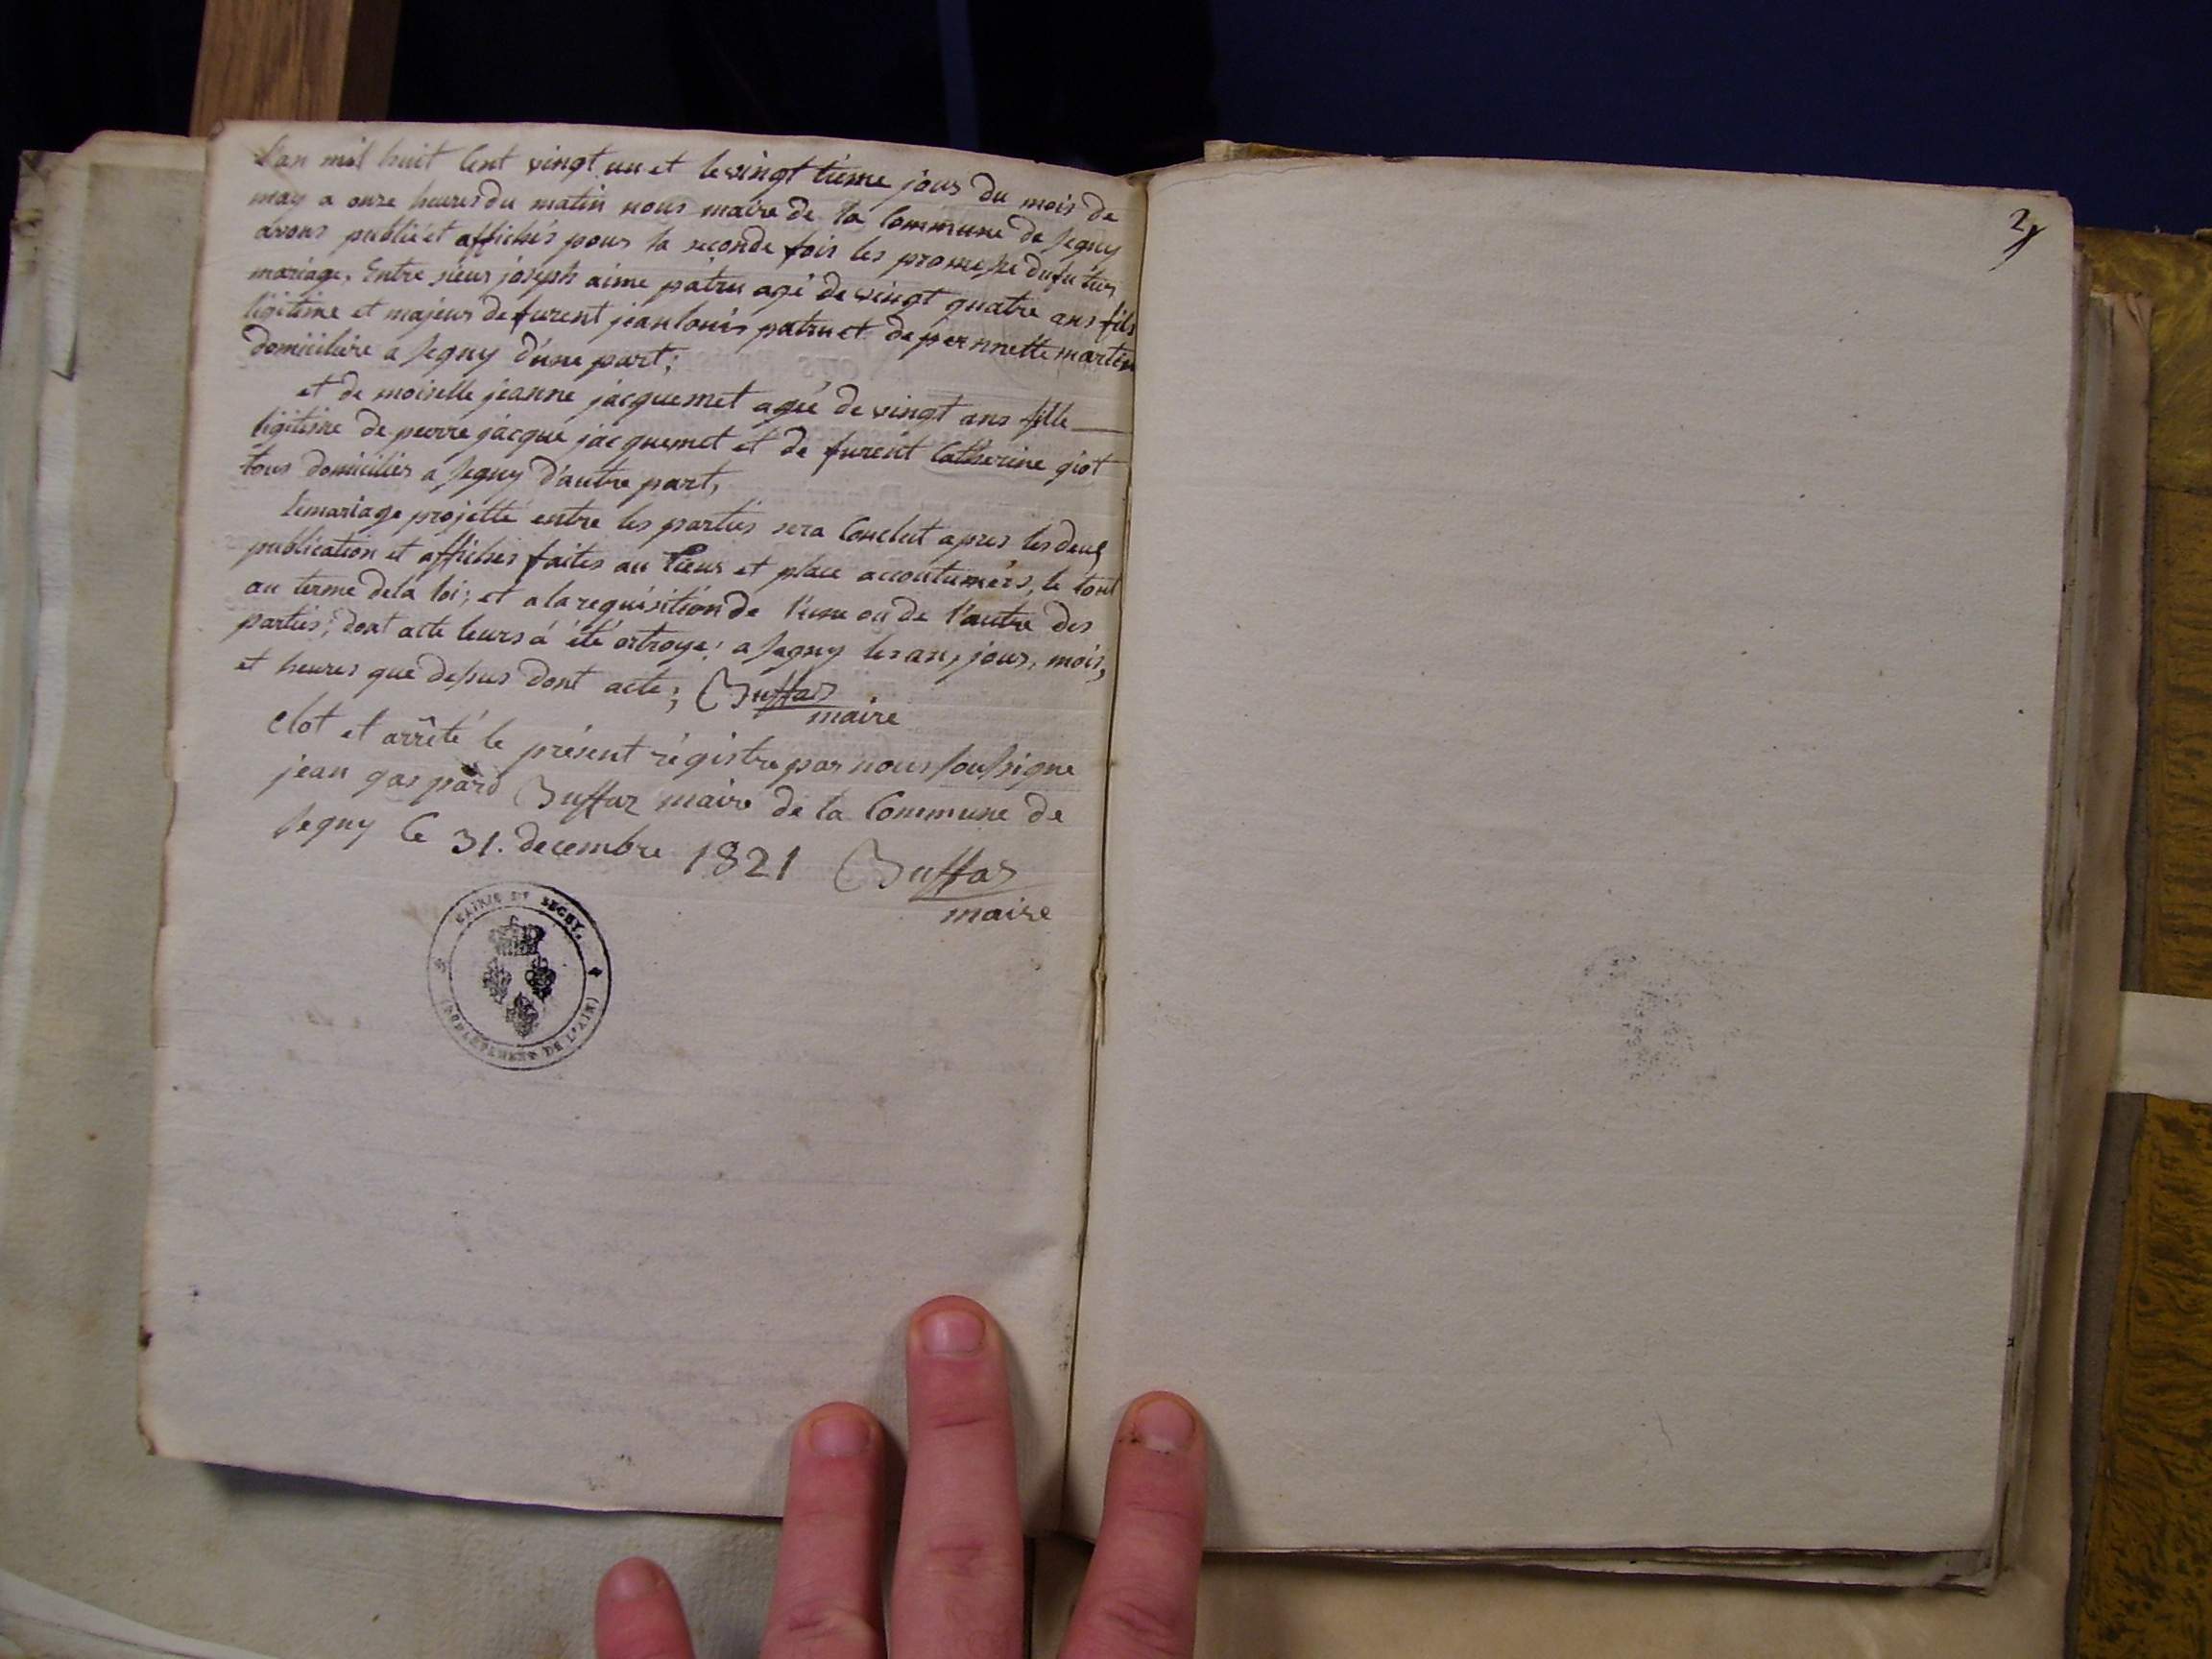 L'an mil huit Cent vingt un et le vingttieme jour du mois de
may a onze heures du matin nous maire de la Commune de Segny
avons publié et affichés pour la seconde fois les promesse du futur
mariage. Entre sieur joseph aime patru agé de vingt quatre ans fils
légitime et majeur de furent jean louis patru et de pernnette martin
domiciliére a Segny d'une part;
et de moiselle jeanne jacquemet agée de vingt ans fille
légitime de pierre jacque jacquemet et de furent Catherine giot
tous domiciliés a Segny d'autre part,
le mariage projetté entre les parties sera Conclut apres les deux
publication et affiches faites au lieux et place accoutumées, le tout
au terme de la loi; et a la requisition de l'une ou de l'autre des
parties; dont acte leurs a été octroye; a Segny les an, jour, mois,
et heures que dessus dont acte; Buffaz
maire
Clot et arrêté le présent régistre par nous soussigne
jean gaspard Buffaz maire de la Commune de
Segny le 31. decembre 1821 Buffaz
maire
MAIRIE DE SEGNY,
(DÉPARTEMENT DE L'AIN)
2